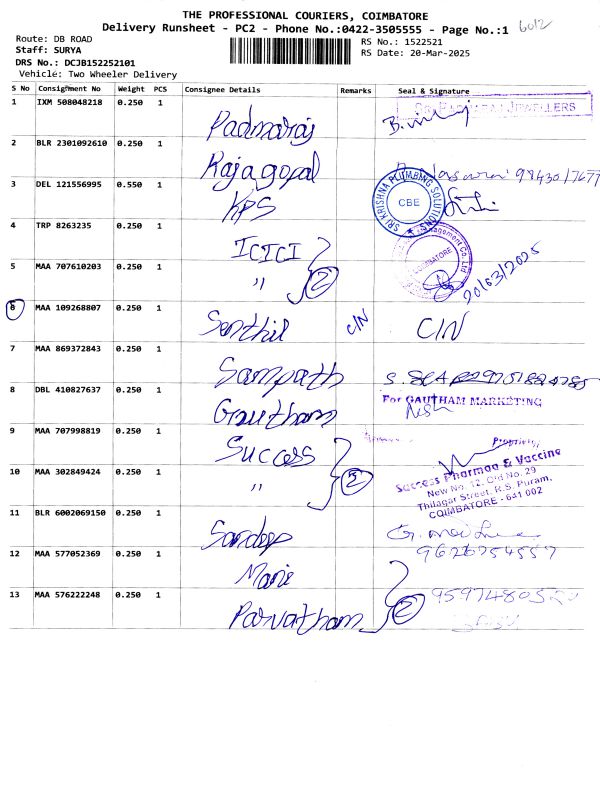 THE PROFESSIONAL COURIERS, COIMBATORE
Delivery Runsheet - PC2 - Phone No.:0422-3505555 - Page No.:1
6012
Route: DB ROAD
Staff: SURYA
DRS No.: DCJB152252101
Vehicle: Two Wheeler Delivery
RS No.: 1522521
RS Date: 20-Mar-2025
S No Consignment No Weight PCS Consignee Details Remarks Seal & Signature
1 IXM 508048218 0.250 1 Padmaraj JEWELLERS
2 BLR 2301092610 0.250 1 Rajagopal
3 DEL 121556995 0.550 1 KPS SRI KRISHNA PLUMBING SOLUTIONS CBE
4 TRP 8263235 0.250 1 ICICI COIMBATORE
5 MAA 707610203 0.250 1 " 2 20/03/2025
6 MAA 109268807 0.250 1 Senthil C/N C/N
7 MAA 869372843 0.250 1 Sampath
8 DBL 410827637 0.250 1 Goutham For GAUTHAM MARKETING
9 MAA 707998819 0.250 1 Success Proprietor
10 MAA 302849424 0.250 1 " 2 Success Pharmaa & Vaccine
New No. 12, Old No. 29
Thilagar Street, R.S. Puram,
COIMBATORE - 641 002
11 BLR 6002069150 0.250 1 Sandeep
12 MAA 577052369 0.250 1 Mani
13 MAA 576222248 0.250 1 Parvatham 2